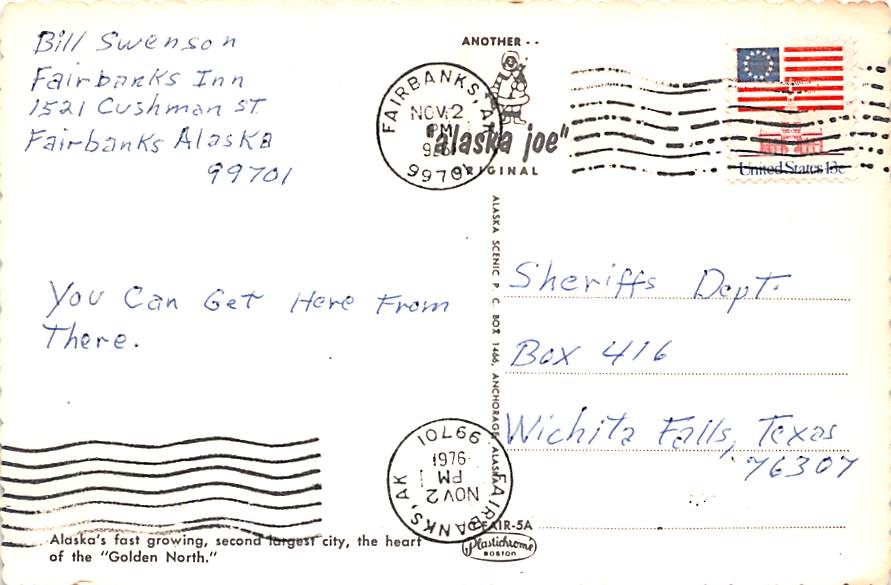 Bill Swenson
Fairbanks Inn
1521 Cushman ST
Fairbanks Alaska
99701
ANOTHER - -
"alaska joe"
ORIGINAL
FAIRBANKS, AK
NOV 2
PM
1976
99701
United States 13c
You Can Get Here From
There.
ALASKA SCENIC P. C. BOX 1466, ANCHORAGE, ALASKA
Sheriffs Dept.
Box 416
Wichita Falls, Texas
76307
FAIRBANKS, AK
NOV 2
PM
1976
99701
FAIR-5A
Plastichrome
BOSTON
Alaska's fast growing, second largest city, the heart
of the "Golden North."